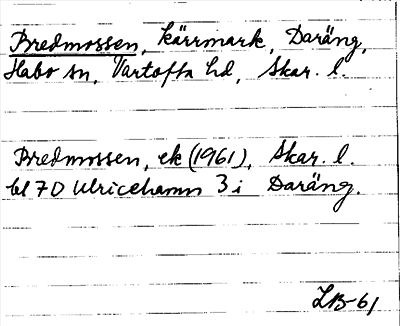 Bredmossen, kärrmark, Daräng,
Habo sn, Vartofta hd, Skar. l.
Bredmossen, ek (1961), Skar. l.
bl 7D Ulricehamn 3 i Daräng.
LB-61